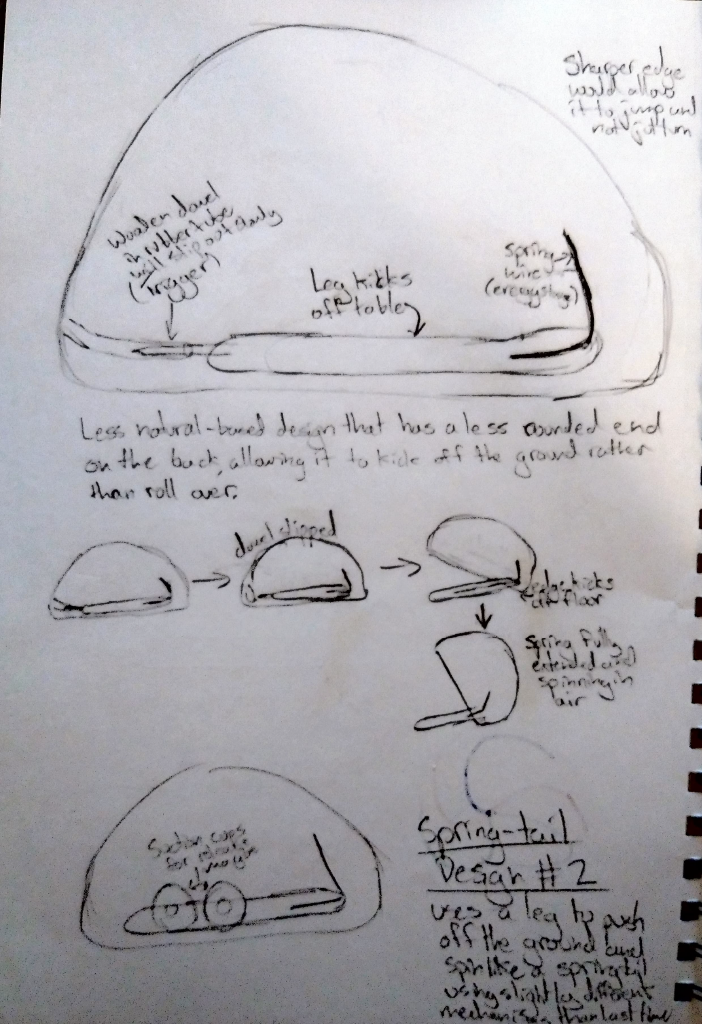 Sharper edge
would allow
it to jump and
not just turn
Wooden dowel
in rubber tube
will slip out slowly
(Trigger)
Leg kicks
off table
spring
wire
Less natural-based design that has a less rounded end
on the back, allowing it to kick off the ground rather
than roll over.
dowel slipped
edge kicks
off floor
Spring fully
extended and
spinning in
air
Suction cups
for
maybe
Spring-tail
Design #2
uses a leg to push
off the ground and
spin like a springtail
using slightly different
mechanisms than last time